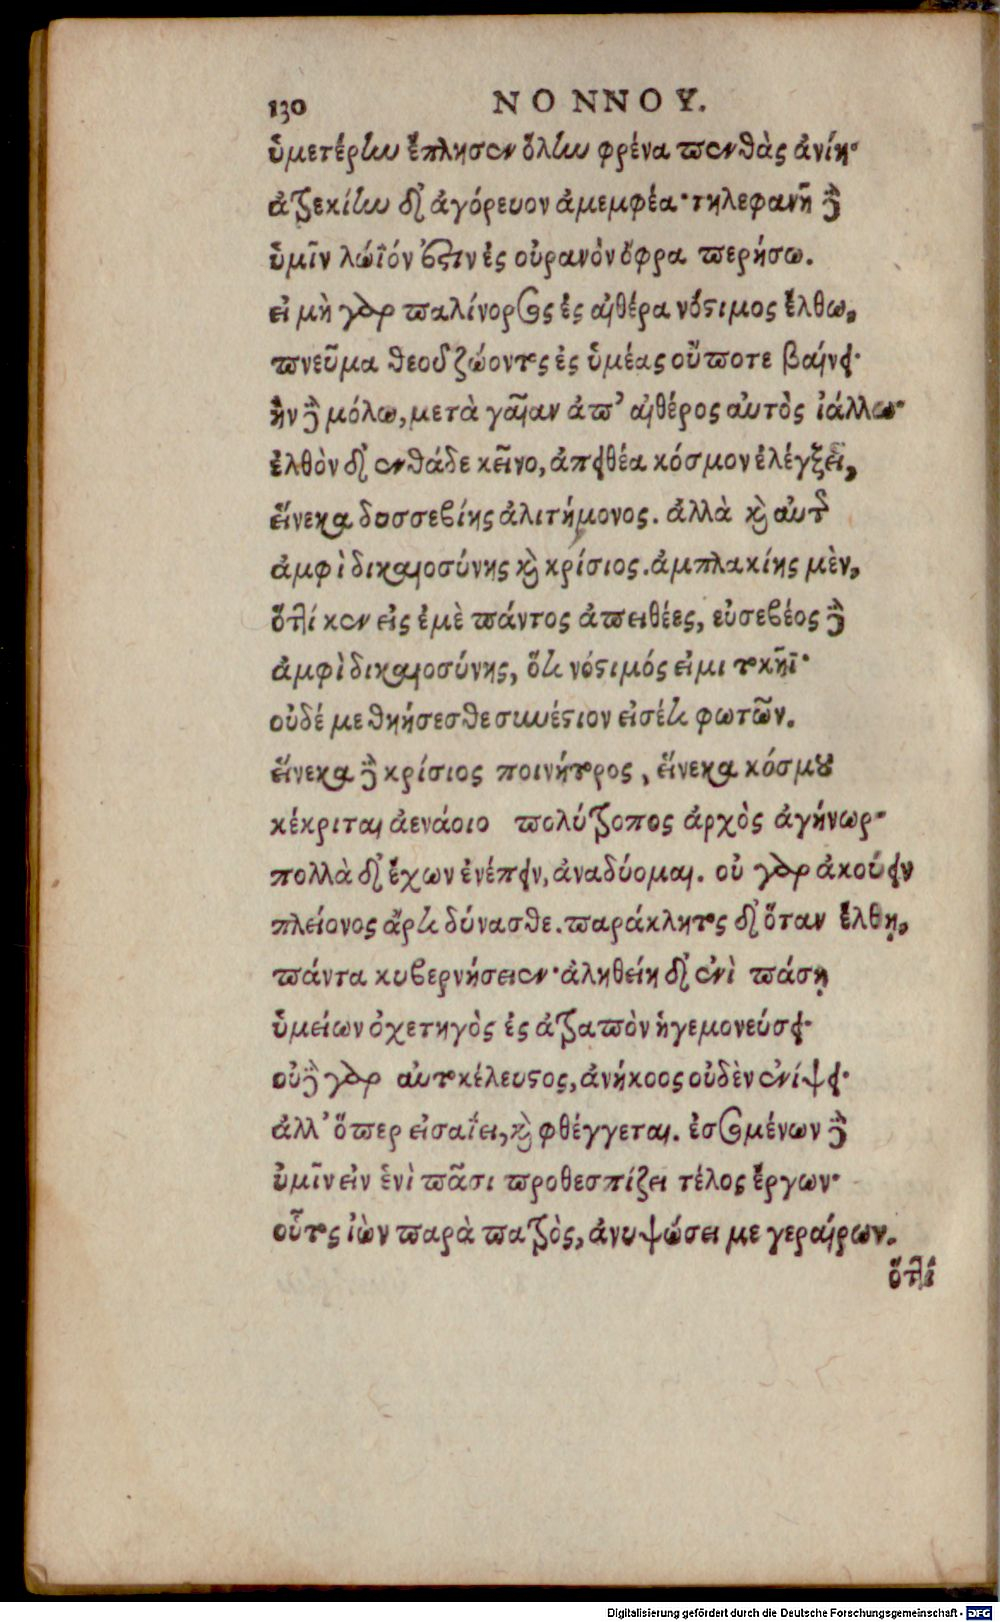 130 ΝΟΝΝΟΥ.
ὑμετέρην ἔπλησεν ὅλην φρένα πενθὰς ἀνίη·
ἀτρεκίην δ' ἀγόρευον ἀμεμφέα· τηλεφανῆ δὲ
ὑμῖν λώϊόν ἐστιν ἐς οὐρανὸν ὄφρα περήσω.
εἰ μὴ γὰρ παλίνορσος ἐς αἰθέρα νόστιμος ἔλθω,
πνεῦμα θεοῦ ζώοντος ἐς ὑμέας οὔποτε βαίνει·
ἢν δὲ μόλω, μετὰ γαῖαν ἀπ' αἰθέρος αὐτὸς ἰάλλω·
ἐλθὸν δ' ἐνθάδε κεῖνο, ἀπειθέα κόσμον ἐλέγξει,
εἵνεκα δυσσεβίης ἀλιτήμονος. ἀλλὰ καὶ αὐτοῦ
ἀμφὶ δικαιοσύνης καὶ κρίσιος. ἀμπλακίης μὲν,
ὅττί κεν εἰς ἐμὲ πάντος ἀπειθέες, εὐσεβέος δὲ
ἀμφὶ δικαιοσύνης, ὅτι νόστιμός εἰμι τοκῆϊ·
οὐδέ με θηήσεσθε συνέστιον εἰσέτι φωτῶν.
εἵνεκα δὲ κρίσιος ποινήτορος, εἵνεκα κόσμου
κέκριται ἀενάοιο πολύτροπος ἀρχὸς ἀγήνωρ·
πολλὰ δ' ἔχων ἐνέπειν, ἀναδύομαι. οὐ γὰρ ἀκούειν
πλείονος ἄρτι δύνασθε. παράκλητος δ' ὅταν ἔλθῃ,
πάντα κυβερνήσειεν· ἀληθείη δ' ἐνὶ πάσῃ
ὑμείων ὀχετηγὸς ἐς ἀτραπὸν ἡγεμονεύσει·
οὐδὲ γὰρ αὐτοκέλευστος, ἀνήκοος οὐδὲν ἐνίψει·
ἀλλ' ὅπερ εἰσαΐει, καὶ φθέγγεται. ἐσσομένων δὲ
ὑμῖν εἰν ἑνὶ πᾶσι προθεσπίζει τέλος ἔργων·
οὗτος ἰὼν παρὰ πατρὸς, ἀνυψώσει με γεραίρων.
ὅττί
Digitalisierung gefördert durch die Deutsche Forschungsgemeinschaft - DFG